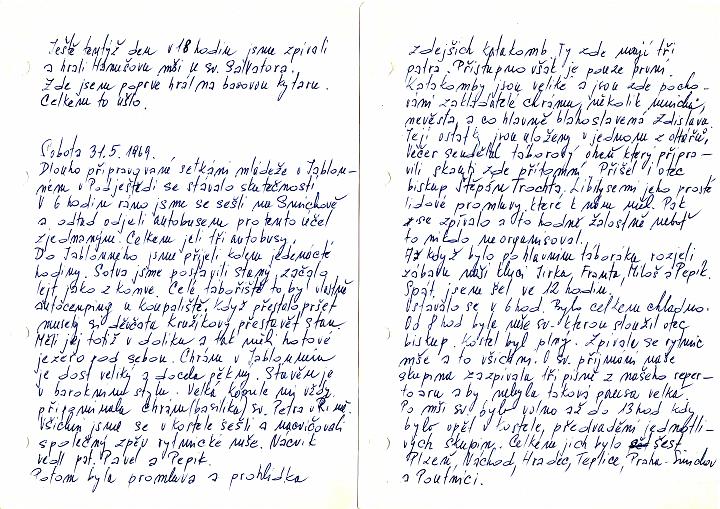 Ještě tentýž den v 18 hodin jsme zpívali
a hráli Hanušovu mši u sv. Salvatora.
Zde jsem poprve hrál na basovou kytaru.
Celkem to ušlo.
Sobota 31.5.1969.
Dlouho připravované setkání mládeže v Jablon-
ném v Podještědí se stávalo skutečností
V 6 hodin ráno jsme se sešli na Smíchově
a odtud odjeli autobusem pro tento účel
zjednaným. Celkem jeli tři autobusy.
Do Jablonného jsme přijeli kolem jedenácté
hodiny. Sotva jsme postavili stany, začalo
lejt jako z konve. Celé tábořiště to byl vlastně
autocamping u koupaliště. Když přestalo pršet
musely si děvčata Kružíkovy přestavět stan.
Měli jej totiž v dolíku a tak měli hotové
jezero pod sebou. Chrám v Jablonném
je dost veliký a docela pěkný. Stavěn je
v barokním stylu. Velká kopule mi vždy
připomínala chrám (basilika) sv. Petra v Římě.
Všichni jsme se v kostele sešli a nacvičovali
společný zpěv rytmické mše. Nácvik
vedl pat. Pavel a Pepík.
Potom byla promluva a prohlídka
zdejších katakomb. Ty zde mají tři
patra. Přístupno však je pouze první.
Katakomby jsou veliké a jsou zde pocho-
váni zakladatelé chrámu, několik mnichů,
nevěsta, a co hlavně blahoslavená Zdislava.
Její ostatky jsou uloženy v jednom z oltářů.
Večer se udělal táborový oheň který připra-
vili skauti zde přítomní. Přišel i otec
biskup Štěpán Trochta. Líbily se mi jeho prosté
lidové promluvy které k nám měl. Pak
se zpívalo a to hodně žalostně neboť
to nikdo neorganisoval.
Až když bylo po hlavním táboráku rozjeli
zábavu naši kluci Jirka, Franta, Miloš a Pepík.
Spát jsem šel ve 12 hodin.
Vstávalo se v 6 hod. Bylo celkem chladno.
Od 8 hod byla mše sv. kterou sloužil otec
biskup. Kostel byl plný. Zpívala se rytmic
mše a to všichni. O sv. přijímání naše
skupina zazpívala tři písně z našeho reper-
toáru aby nebyla taková pausa velká.
Po mši sv. bylo volno až do 13 hod kdy
bylo opět v kostele, předvádění jednotli-
vých skupin. Celkem jich bylo šest
Plzeň, Náchod, Hradec, Teplice, Praha-Smíchov
a Poutníci.